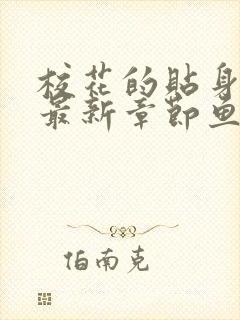 校花的贴身
最新章节鱼
伯南克